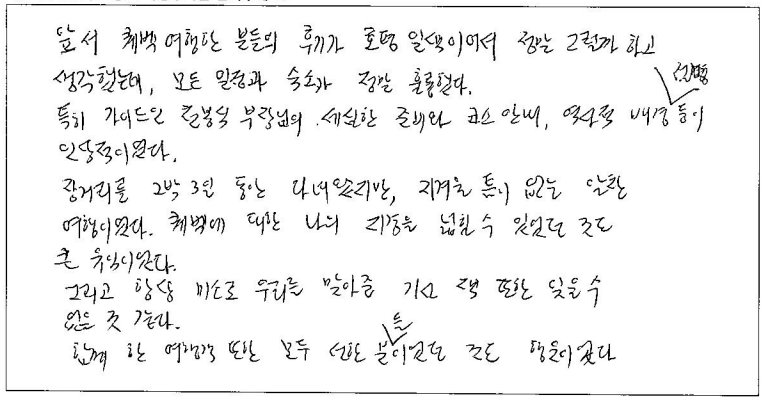 앞서 퀘벡 여행한 분들의 후기가 호평 일색이어서 정말 그럴까 하고
생각했는데, 모든 일정과 숙소가 정말 훌륭했다.
특히 가이드인 부장님의 세심한 준비와 코스 안내, 역사적 배경 설명 등이
인상적이었다.
장거리를 2박 3일 동안 다녀왔지만, 지겨울 틈이 없는 알찬
여행이었다. 퀘벡에 대한 나의 지경을 넓힐 수 있었던 것도
큰 유익이었다.
그리고 항상 미소로 우리를 맞아준 기사 또한 잊을 수
없을 것 같다.
함께 한 여행객 또한 모두 선한 분들이었던 것도 행운이었다